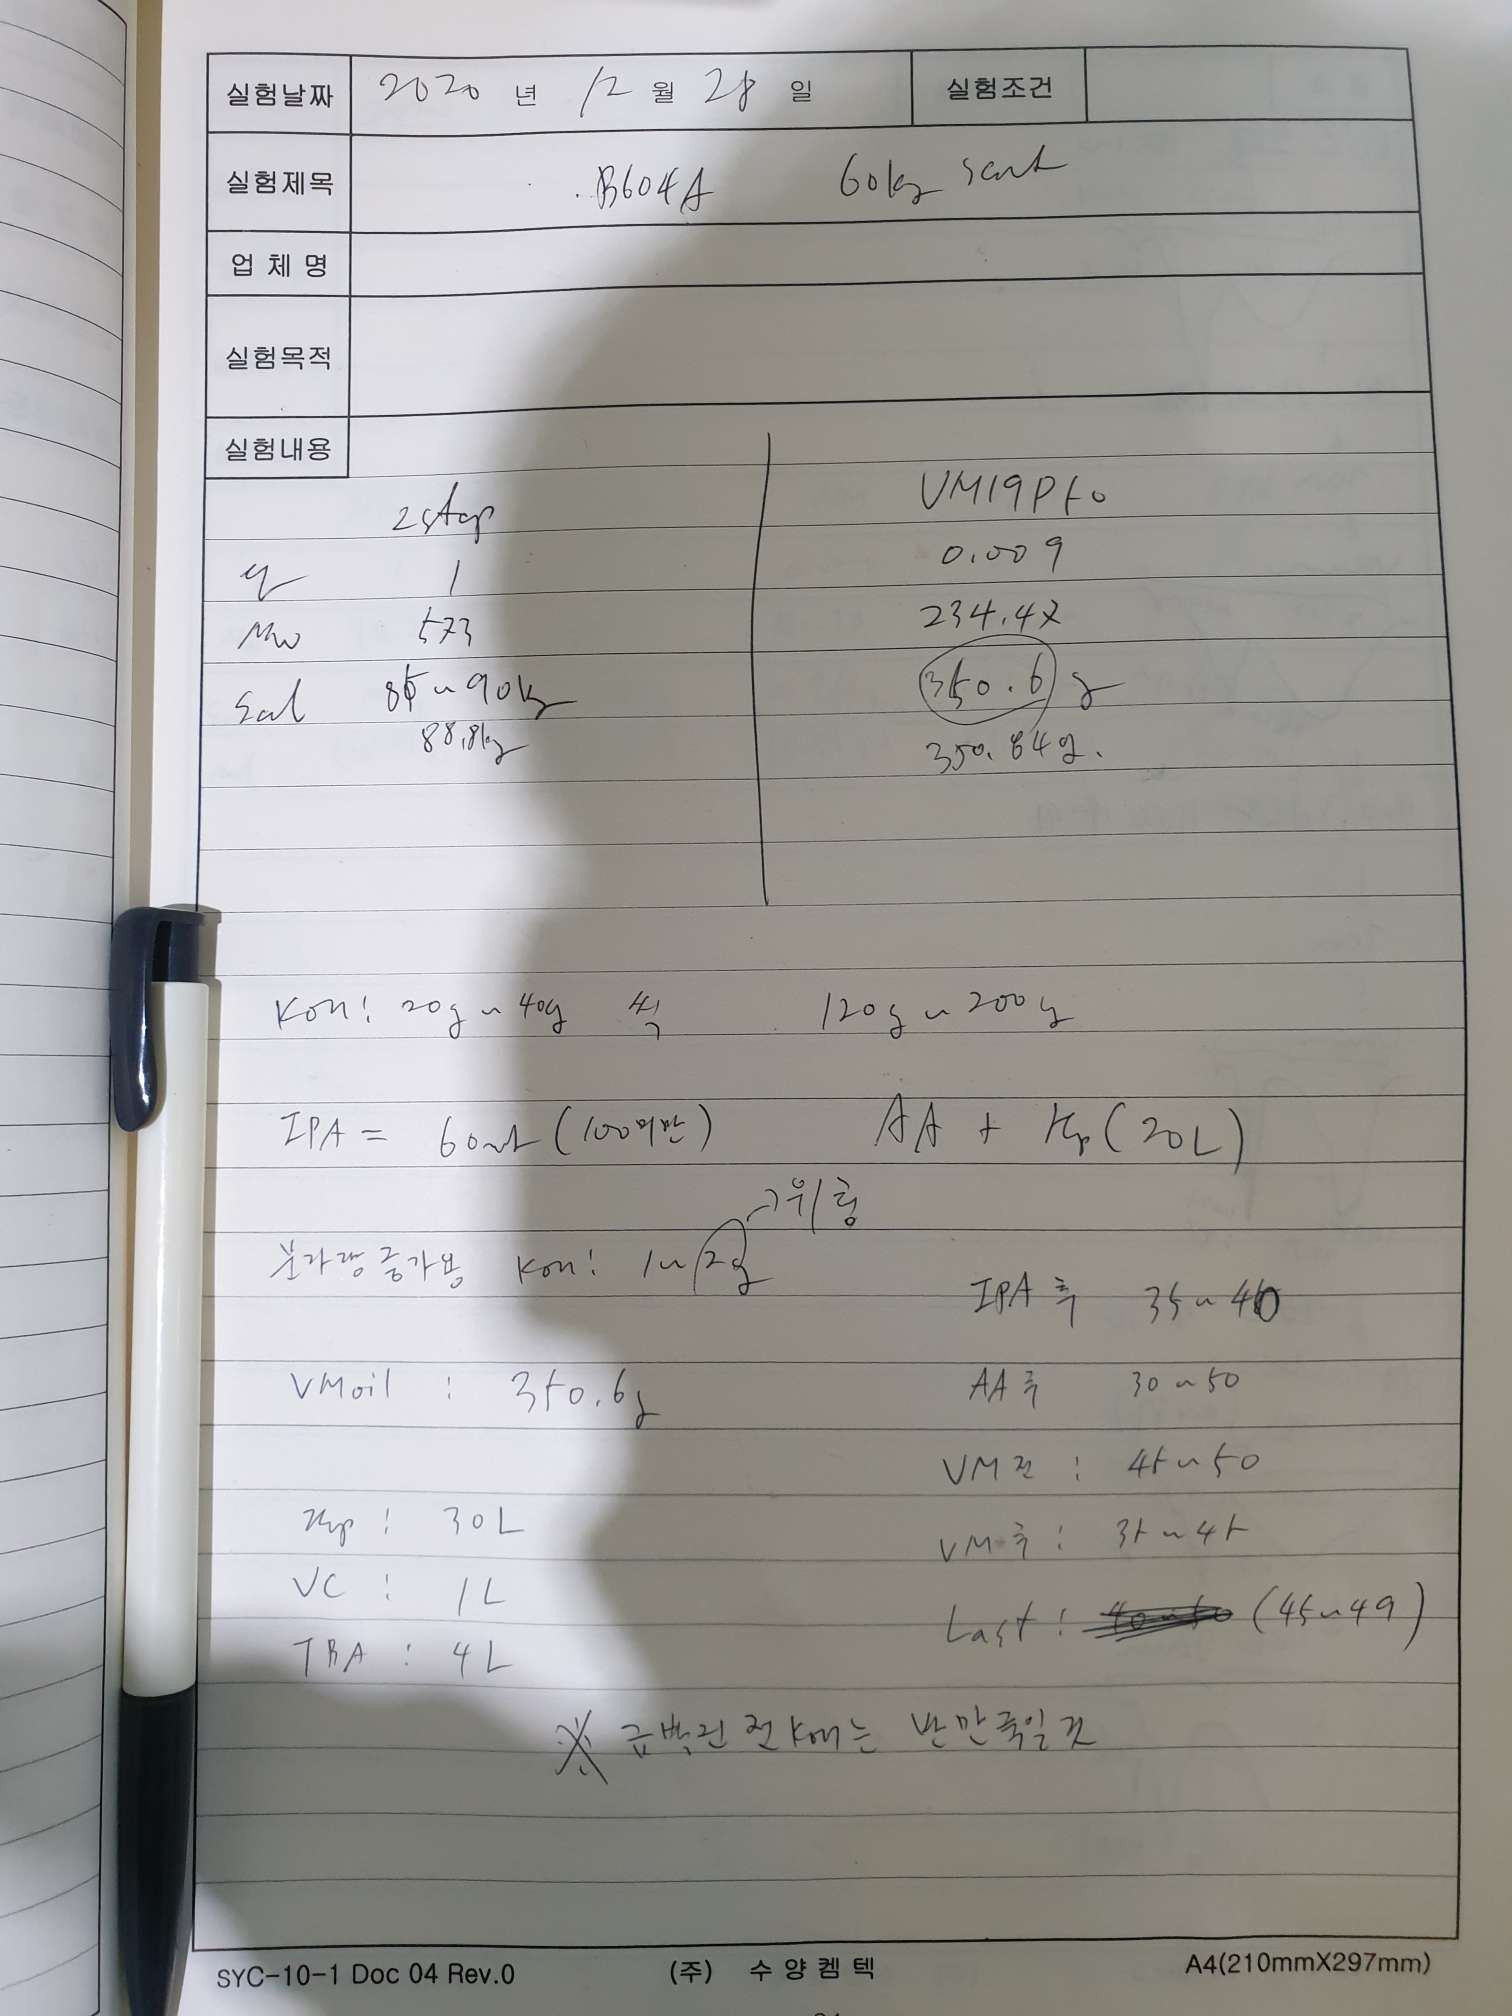 실험날짜 2020 년 12 월 28 일 실험조건
실험제목 B604A 60kg
업 체 명
실험목적
실험내용
2step VM19Pto
eq 1 0.009
Mw 573 234.47
Scal 85~90kg 350.6 g
88.8kg 350.84g.
KOH: 20g~40g 씩 120g~200g
IPA = 60 (100미만) AA + Hp (20L)
→위험
분자량 증가용 KOH: 1~2g
IPA 후 35~40
VMoil : 350.6g AA 후 30~50
VM전 : 45~50
Hp : 30L VM후 : 35~45
VC : 1L
Last : 40~50 (45~49)
TBA : 4L
※ 반만 죽일것
SYC-10-1 Doc 04 Rev.0 (주) 수 양 켐 텍 A4(210mmX297mm)